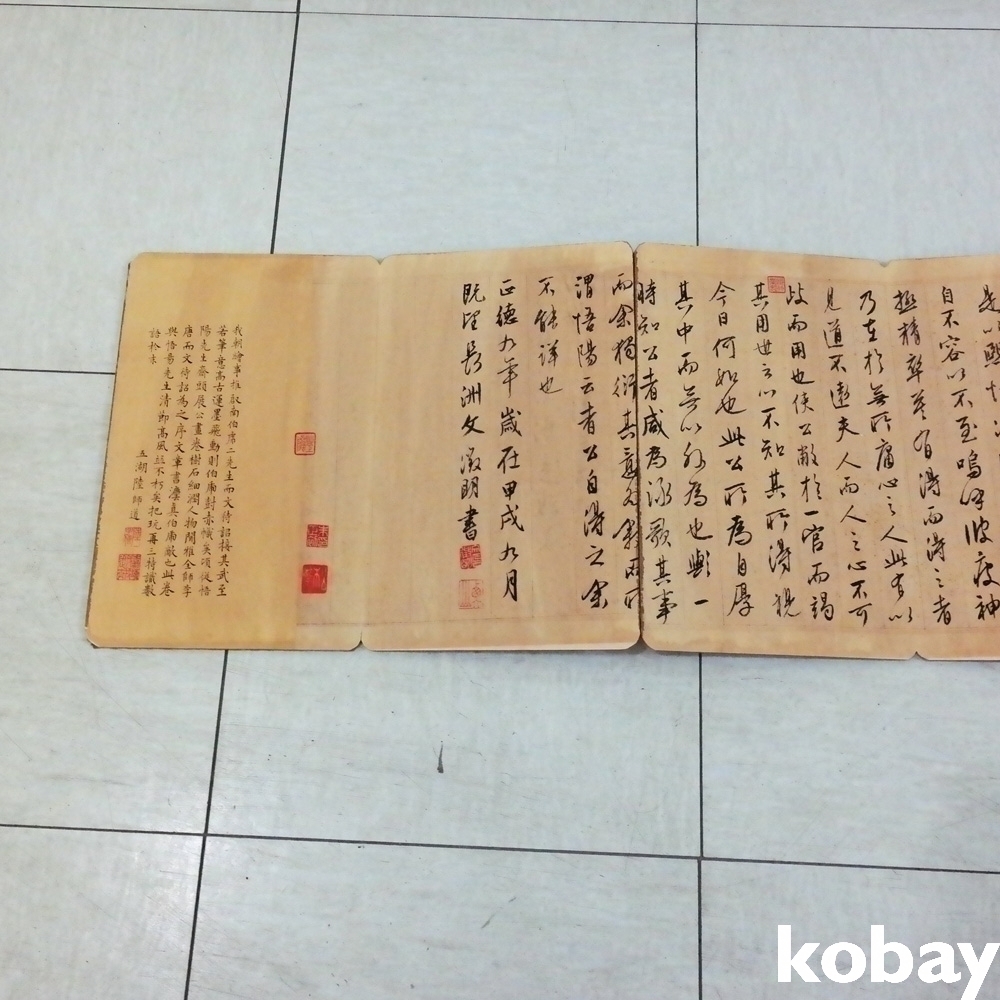 自不容以不至嗚呼彼疲神
極精卒莫有得而得之者
乃在於無所用心之人此有以
見道不遠夫人而人之心不可
歧而用也使公敝於一官而謁
其用世之以不知其所得視
今日何如也此公所為自厚
其中而無以外為也歟一
時知公者咸為詠歌其事
而余獨衍其意為叙所以
謂悟陽云者公自得之余
不能詳也
正德九年歲在甲戌九月
既望長洲文徵明書
我朝繪事推啟南伯虎二先生而文待詔接其武至
若筆意高古運墨飛動則伯虎封赤幟矣頃從悟
陽先生齋頭展公畫卷樹石細潤人物閒雅全師李
唐而文待詔為之序文章書灋真伯虎敵也此卷
與悟昜先生清節高風並不朽矣把玩再三特識數
語於末
五湖陸師道
kobay